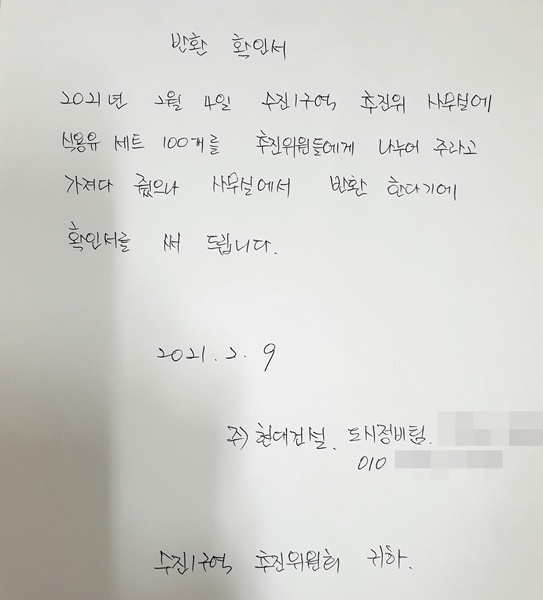 반환 확인서
2021년 2월 4일 수진1구역 추진위 사무실에
식용유 세트 100개를 추진위원들에게 나누어 주라고
가져다 줬으나 사무실에서 반환 한다기에
확인서를 써 드립니다.
2021. 2. 9
주) 현대건설. 도시정비팀.
010
수진1구역 추진위원회 귀하.